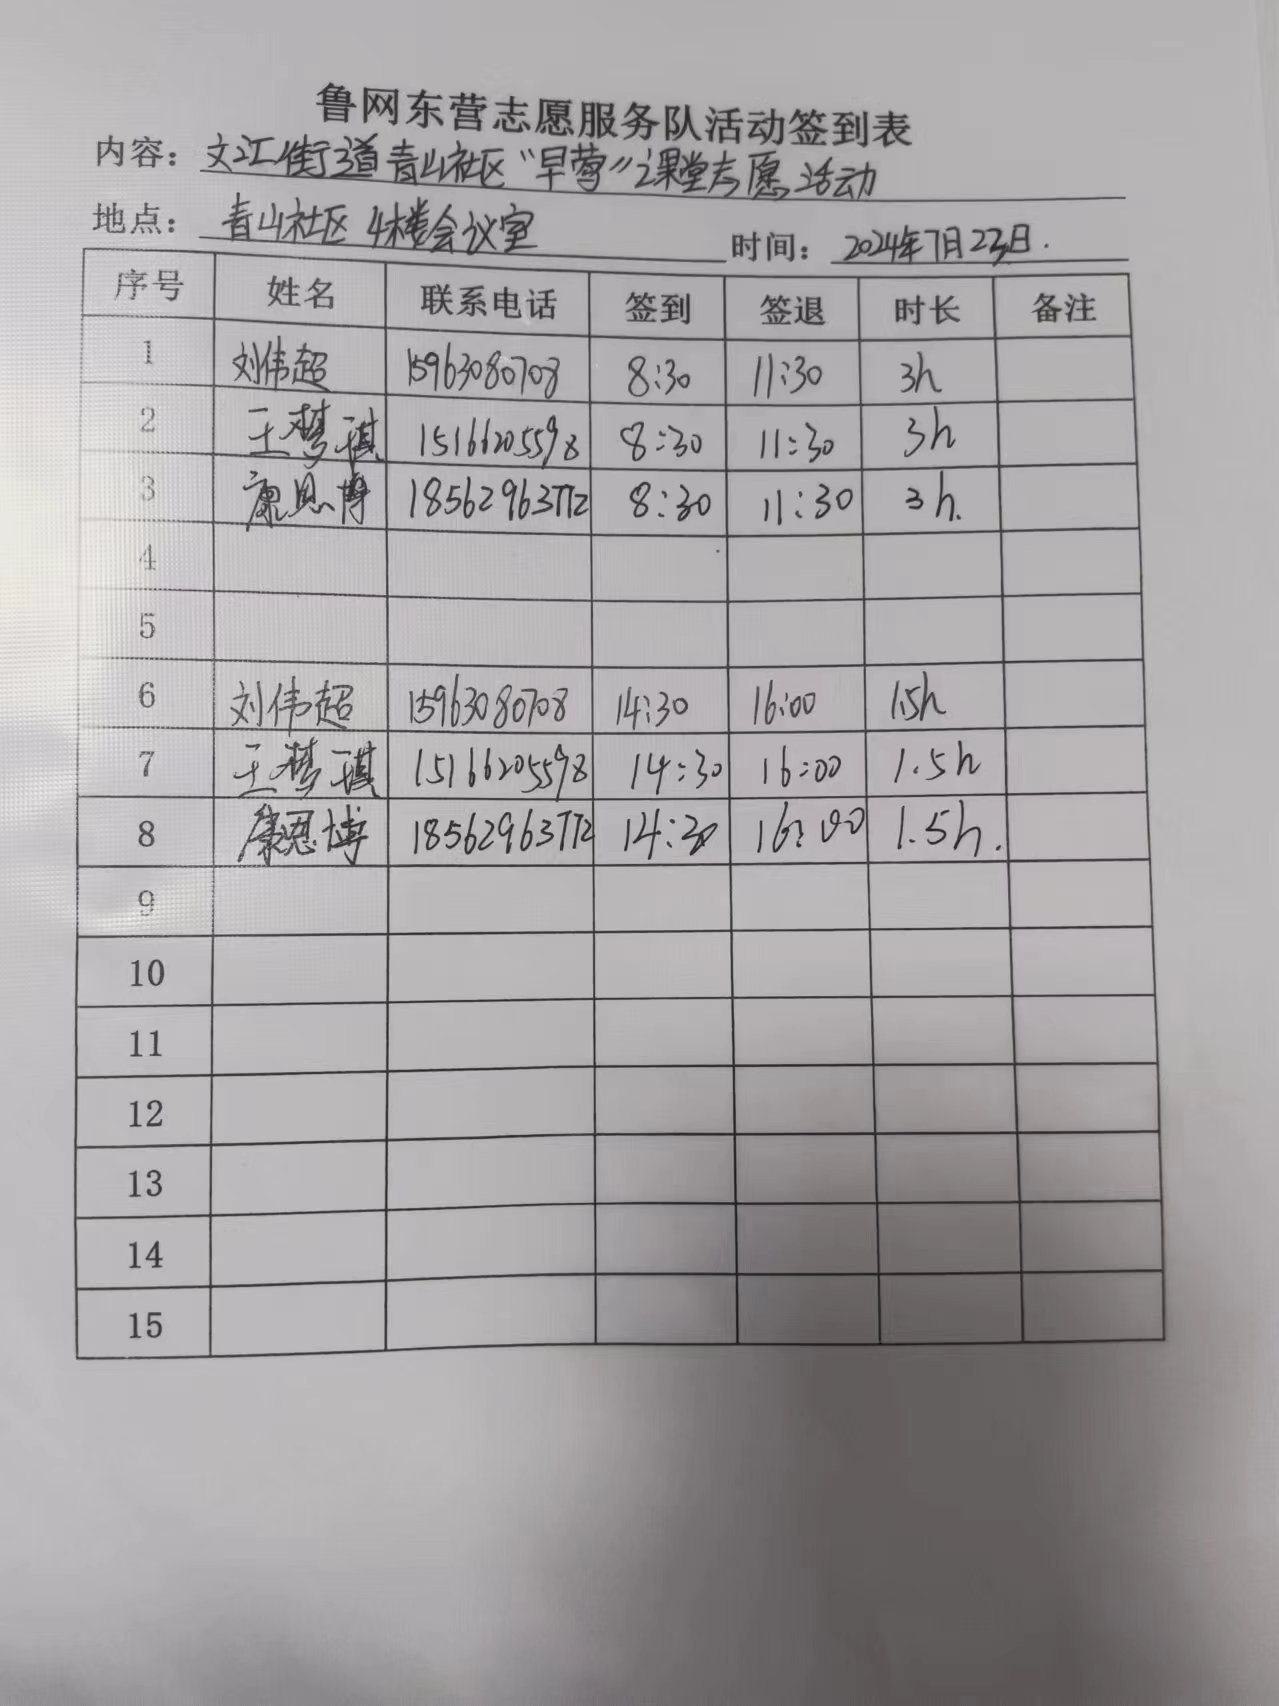 鲁网东营志愿服务队活动签到表
内容：文汇街道青山社区“早莺”课堂志愿活动
地点：青山社区 4楼会议室 时间：2024年7月23日.
序号 姓名 联系电话 签到 签退 时长 备注
1 刘伟超 15963080708 8:30 11:30 3h
2 王梦琪 15166205598 8:30 11:30 3h
3 康恩博 18562963772 8:30 11:30 3h.
4
5
6 刘伟超 15963080708 14:30 16:00 1.5h
7 王梦琪 15166205598 14:30 16:00 1.5h
8 康恩博 18562963772 14:30 16:00 1.5h.
9
10
11
12
13
14
15